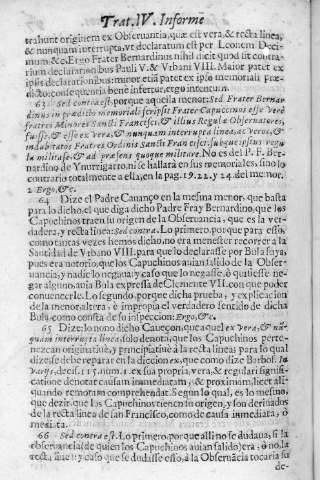 Trat.IV. Informe
trahunt originem ex Obseruantia, quæ est vera, & recta linea,
& nunquam interrupta, vt declaratum est per Leonem Deci-
mum &c. Ergo Frater Bernardinus nihil dicit quod sit contra-
rium declarationibus Pauli V. & Vrbani VIII. Maior patet ex
ipsis declarationibus: minor etiã patet ex ipso memoriali præ-
dicto: consequentia bene infertur, ergo intentum.
63 Sed contra est: porque aquella menor: Sed Frater Bernar-
dinus in prædicto memoriali scripsit Fratres Capuccinos esse verè
fratres Minores Sancti Francisci, & illius Regulæ Obseruatores,
fuisse, & esse ex Vera, & nunquam interrupta linea, ac veros, &
indubitatos Fratres Ordinis Sancti Francisci, subque ipsius regu
la militasse, & ad præsens quoque militare. No es del P. F. Ber-
nardino de Ymurrigarro, ni se hallarà en sus memoriales, sino lo
contrario totalmente a ella, en la pag. 19. 22. y 24. del memor.
2. Ergo, &c.
64 Dize el Padre Cauanço en la mesma menor, que basta
para lo dicho, el que diga dicho Padre Fray Bernardino, que los
Capuchinos traen su origen de la Obseruancia, que es la ver-
dadera, y recta linea: Sed contra. Lo primero, porque para esso,
como tantas vezes hemos dicho, no era menester recorrer a la
Santidad de Vrbano VIII. para que lo declarasse por Bula suya,
pues era notorio, que los Capuchinos auian salido de la Obser-
uancia, y nadie lo negaua: y caso que lo negasse, ò quisiesse ne-
gar alguno, auia Bula expressa de Clemente VII. con que poder
conuencerle. Lo segundo, porque dicha prueba, y explicacion
de la menor altera, è impropia el verdadero sentido de dicha
Bula, como consta de su inspeccion: Ergo, &c.
65 Dize lo nono dicho Caueçon, que aquel ex Vera, & nũ-
quam interrupta linea, solo denota, que los Capuchinos perte-
nezcan originatiuè, y principiatiuè à la recta linea: para lo qual
dize, se debe reparar en la diccion ex, que como dize Barbos. in
Vargs, decis. 115. num. 1. ex sua propria, vera, & regulari signifi-
catione denotat causam immediatam, & proximam, licet ali-
quando remotam comprehendat. Segun lo qual, es lo mesmo,
que dezir, que los Capuchinos tienen su origen, y son deriuados
de la recta linea de san Francisco, como de causa immediata, ò
mediata.
66 Sed contra est. Lo primero, porque alli no se dudaua, si la
obseruancia (de quien los Capuchinos auian salido) era, ò no, la
recta linea: y caso que se dudasse esso, à la Obseruãcia tocaria su
de-